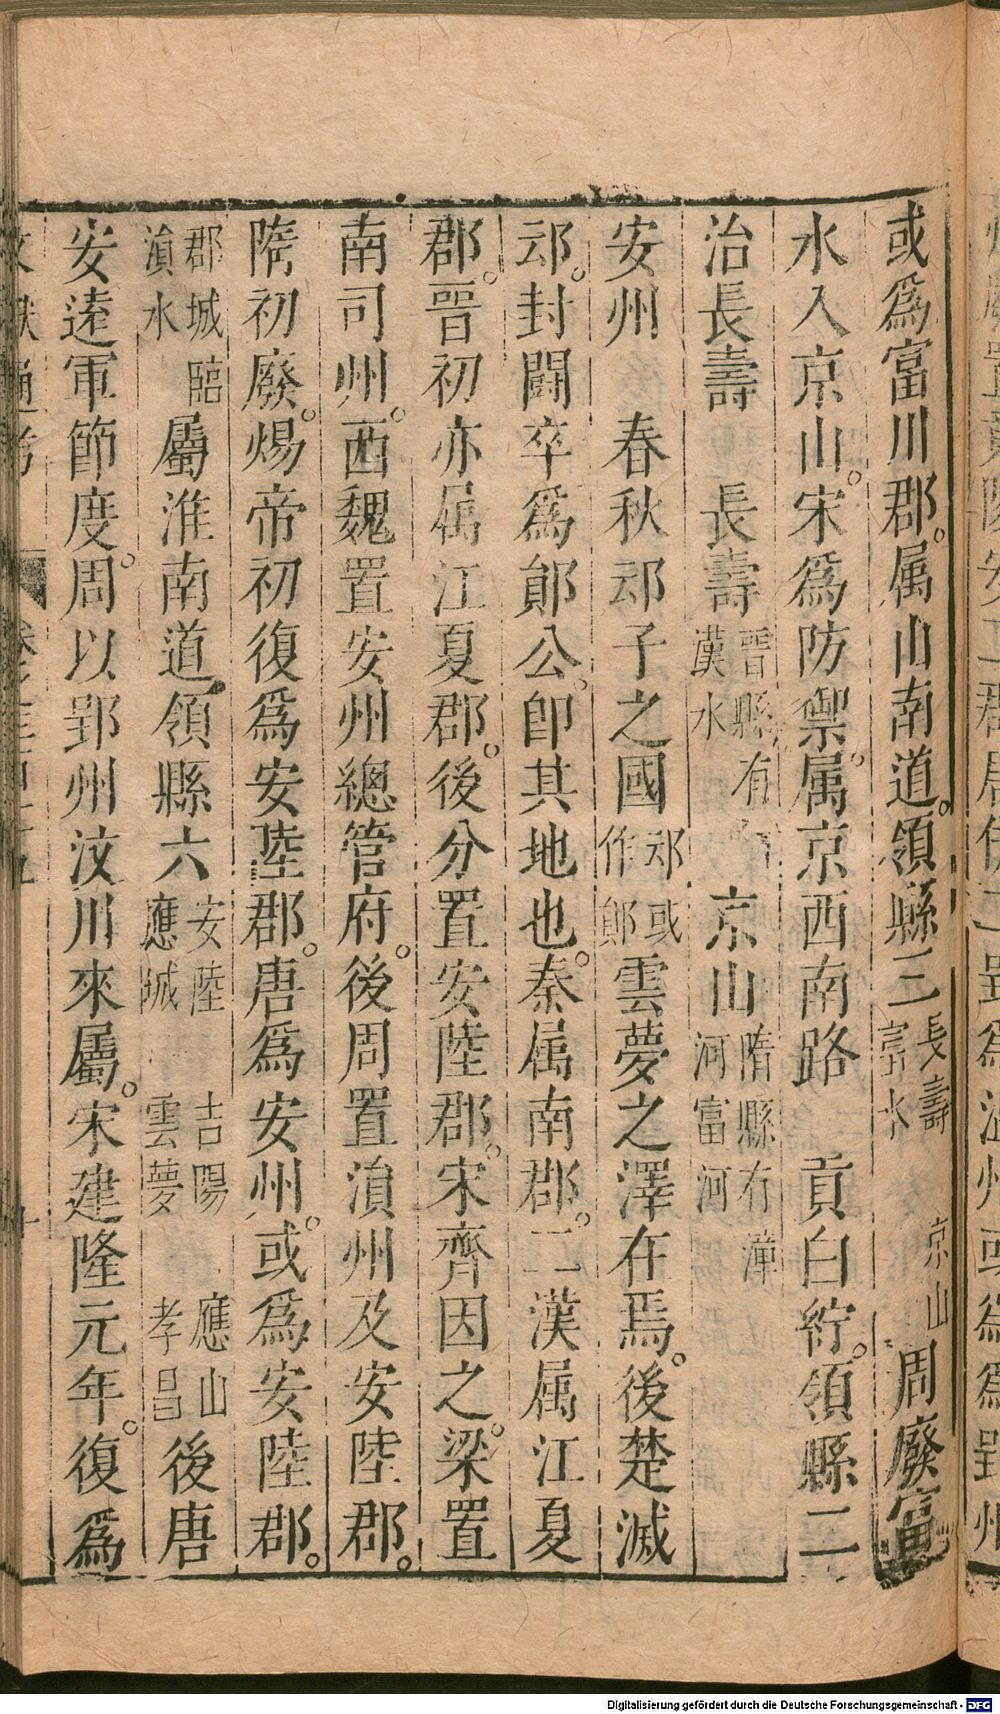 或爲富川郡。属山南道。領縣三長壽 京山富水周廢富
水入京山。宋爲防禦。属京西南路 貢白紵。領縣二
治長壽 長壽晉縣有漢水 京山隋縣有漳河富河
安州 春秋邧子之國邧或作鄖雲夢之澤在焉。後楚滅
邧。封鬪卒爲鄖公。卽其地也。秦属南郡。二漢属江夏
郡。晋初亦属江夏郡。後分置安陸郡。宋齊因之。梁置
南司州。西魏置安州總管府。後周置溳州及安陸郡。
隋初廢。煬帝初復爲安陸郡。唐爲安州。或爲安陸郡。
郡城臨溳水屬淮南道。領縣六安陸 吉陽 應山應城 雲夢 孝昌後唐
安逺軍節度。周以郢州汶川來屬。宋建隆元年。復爲
文獻通考
Digitalisierung gefördert durch die Deutsche Forschungsgemeinschaft - DFG